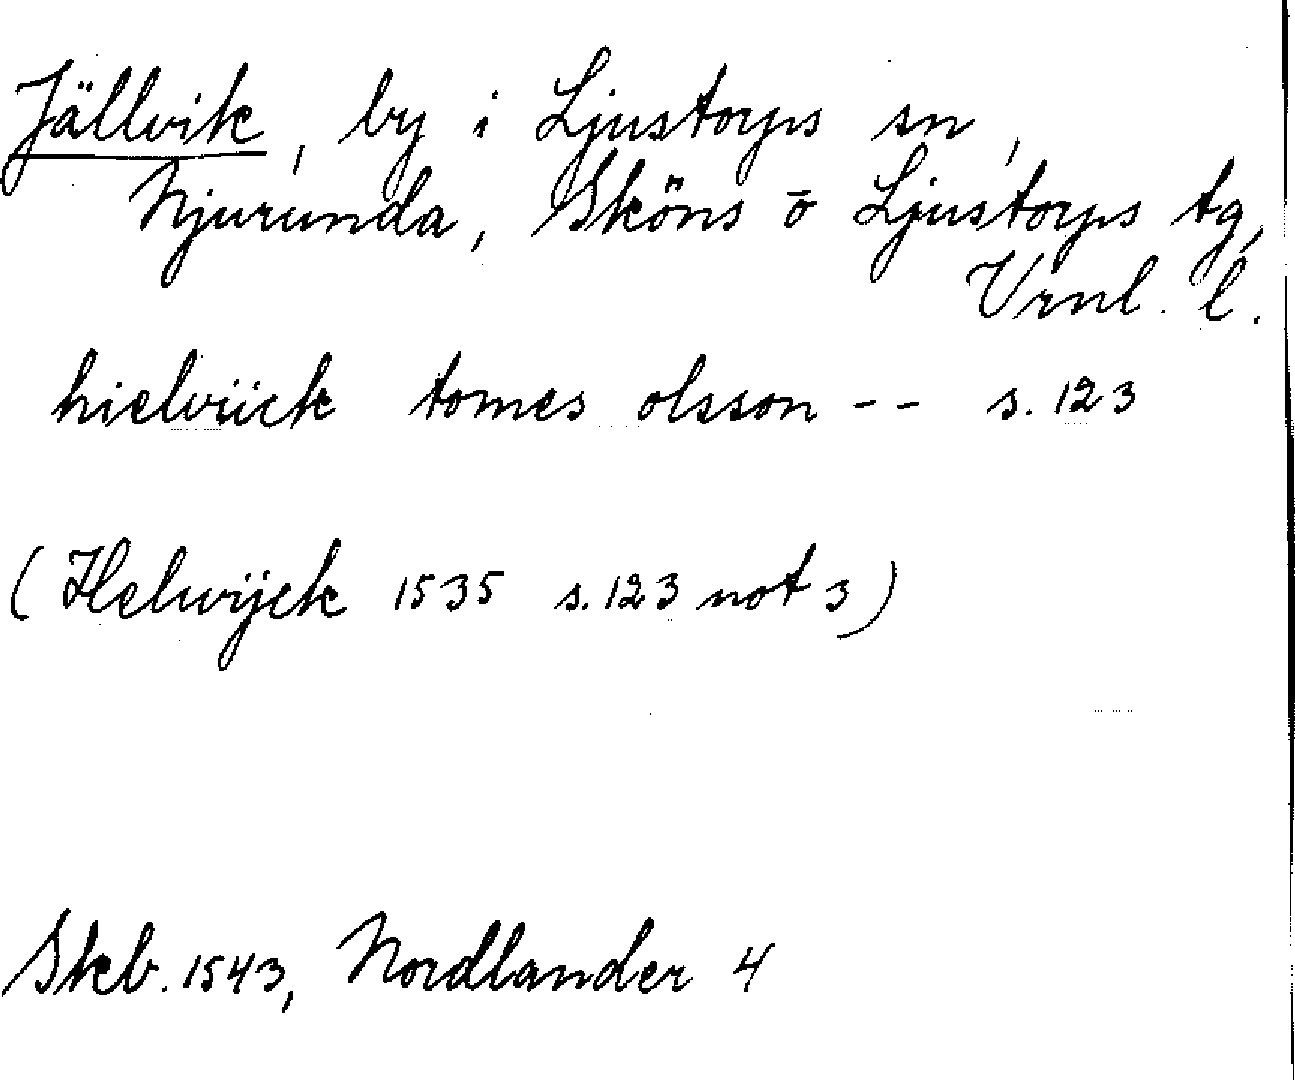 Jällvik, by i Ljustorps sn,
Njurunda, Sköns o Ljustorps tg,
Vrnl. l.
hielviick tomes olsson -- s. 123
(Helwijck 1535 s. 123 not 3)
Skb. 1543, Nordlander 4